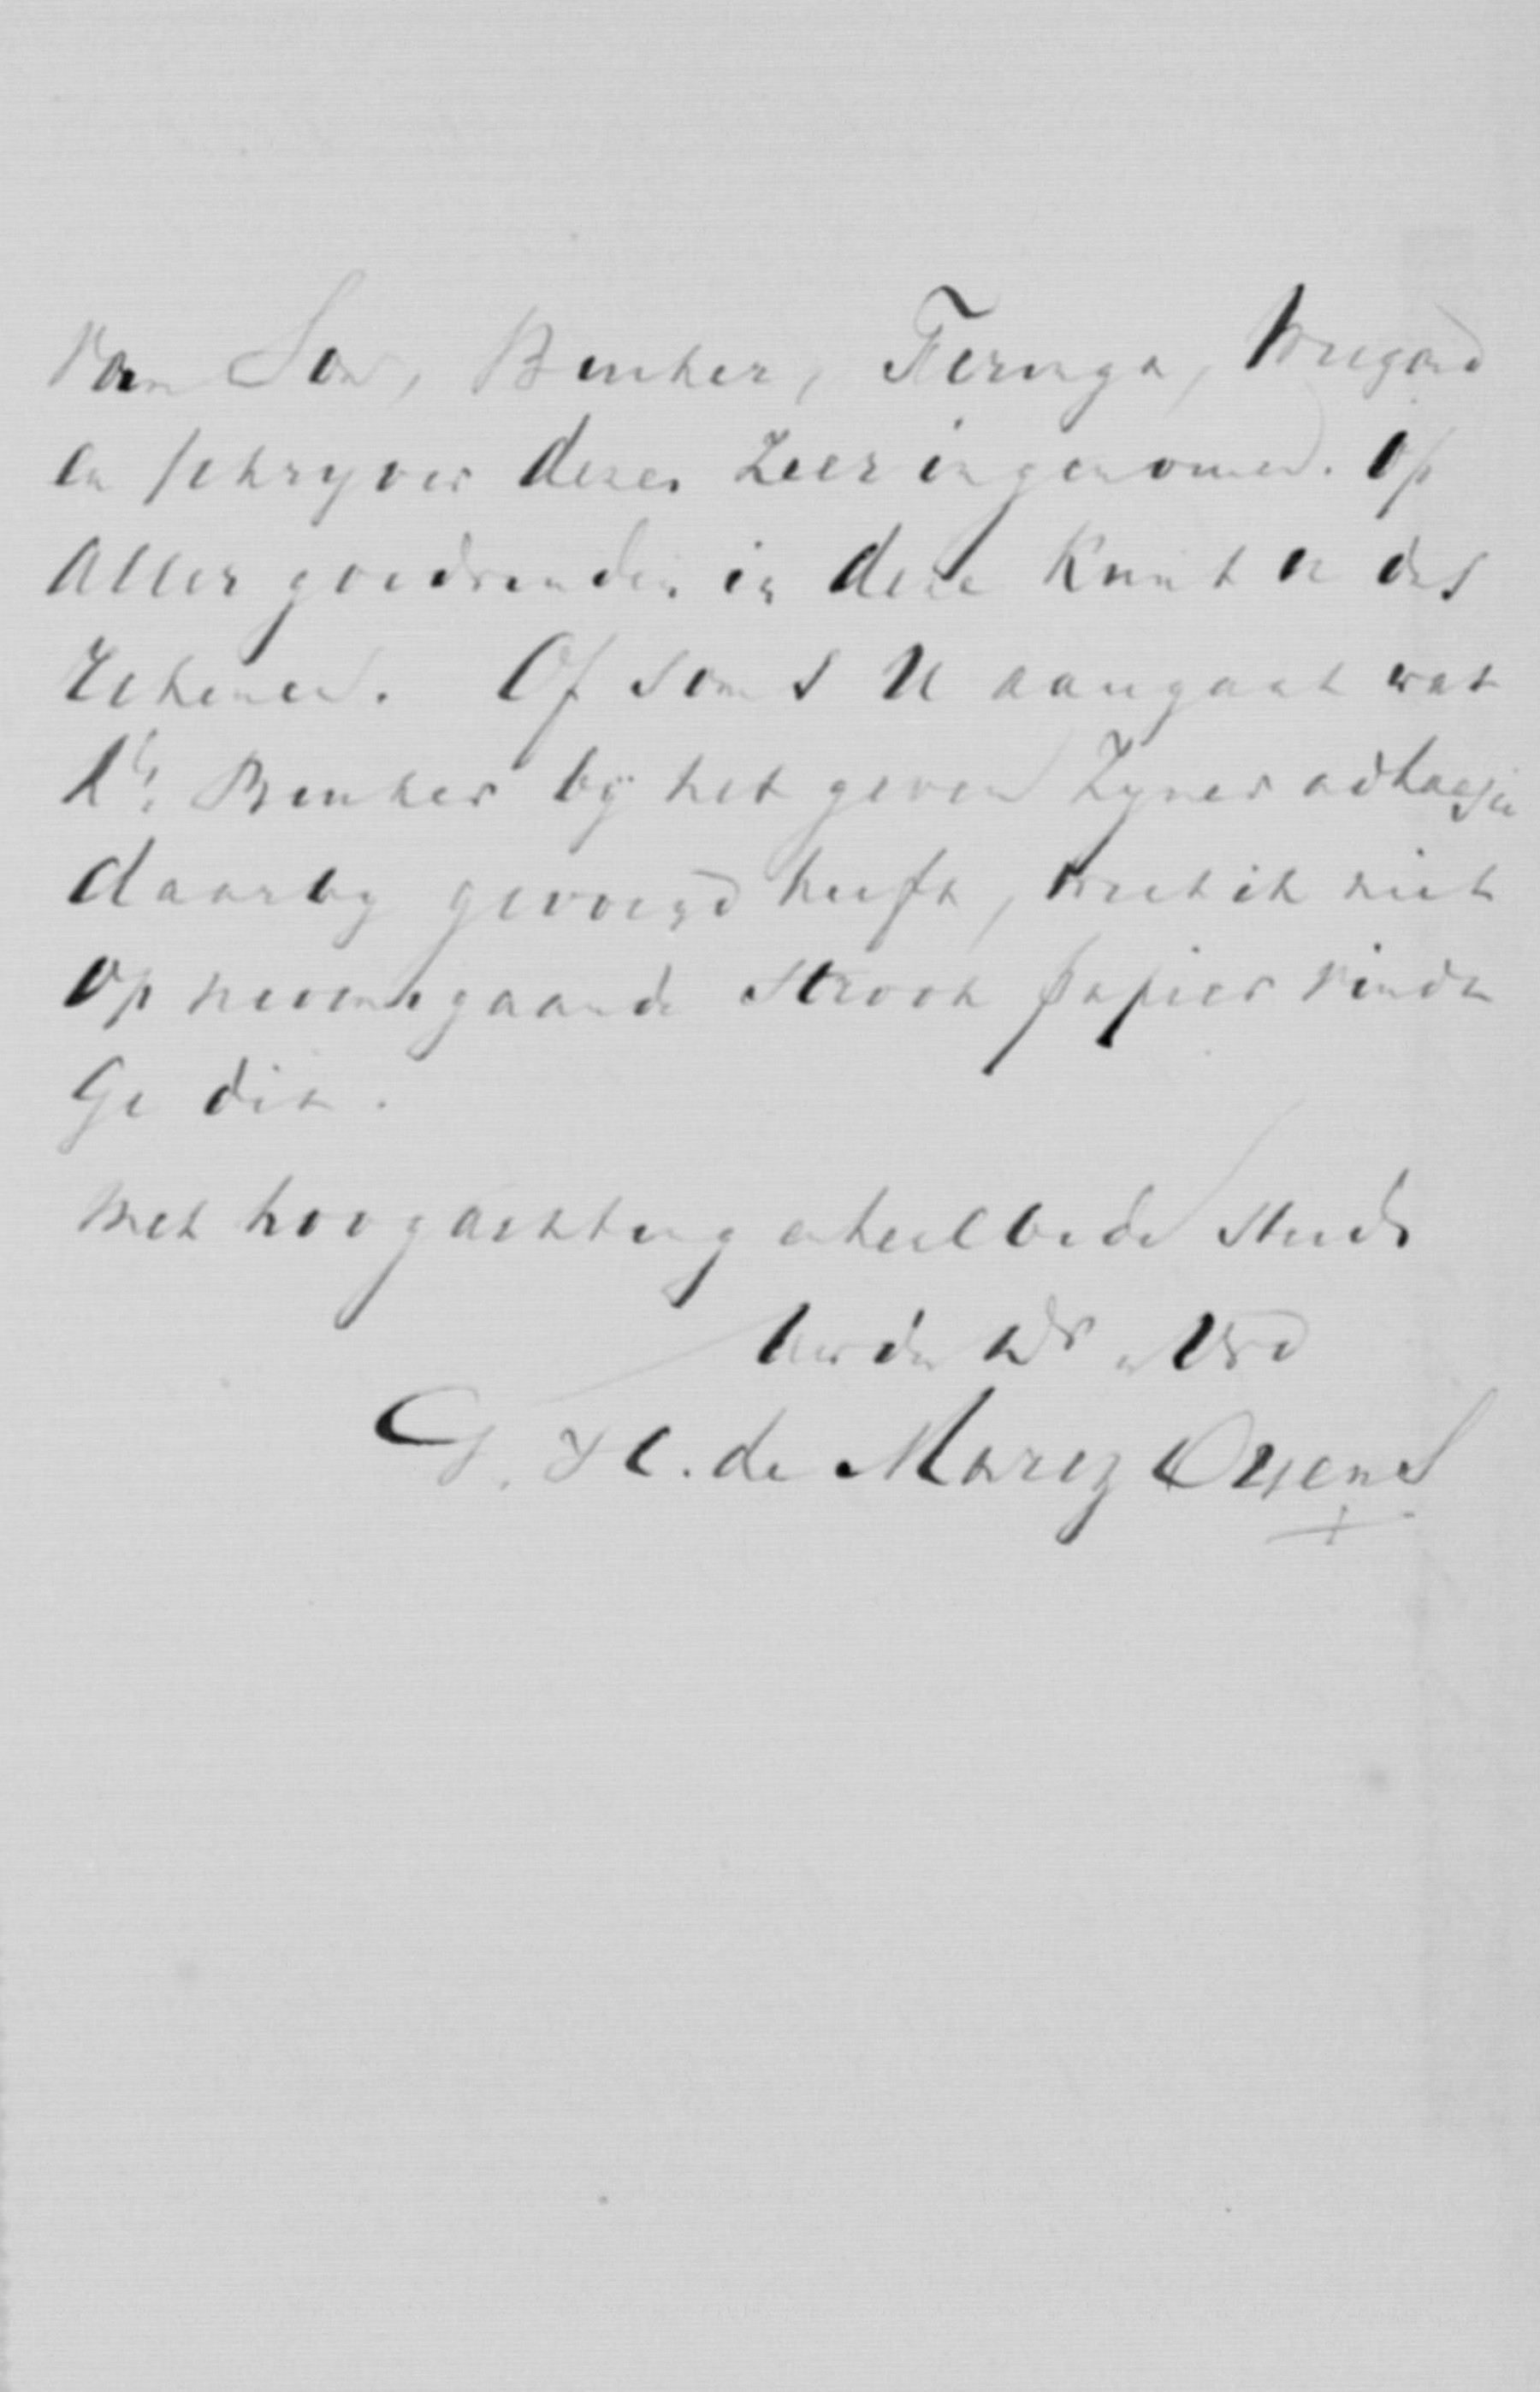 van Son, Bunker, Feringa, Wiegand
en schryver dezes zeer ingenomen. Op
Aller goedvinden in deze kunt U dus
rekenen. Of soms U aangaat wat
Ds. Bunker bij het geven zyner adhaesie
daarby gevoegd heeft, weet ik niet
Op nevensgaande strook papier vindt
Ge dit.
Met hoogachting en heilbede steeds
Uw
G. H. de Marez Oyens